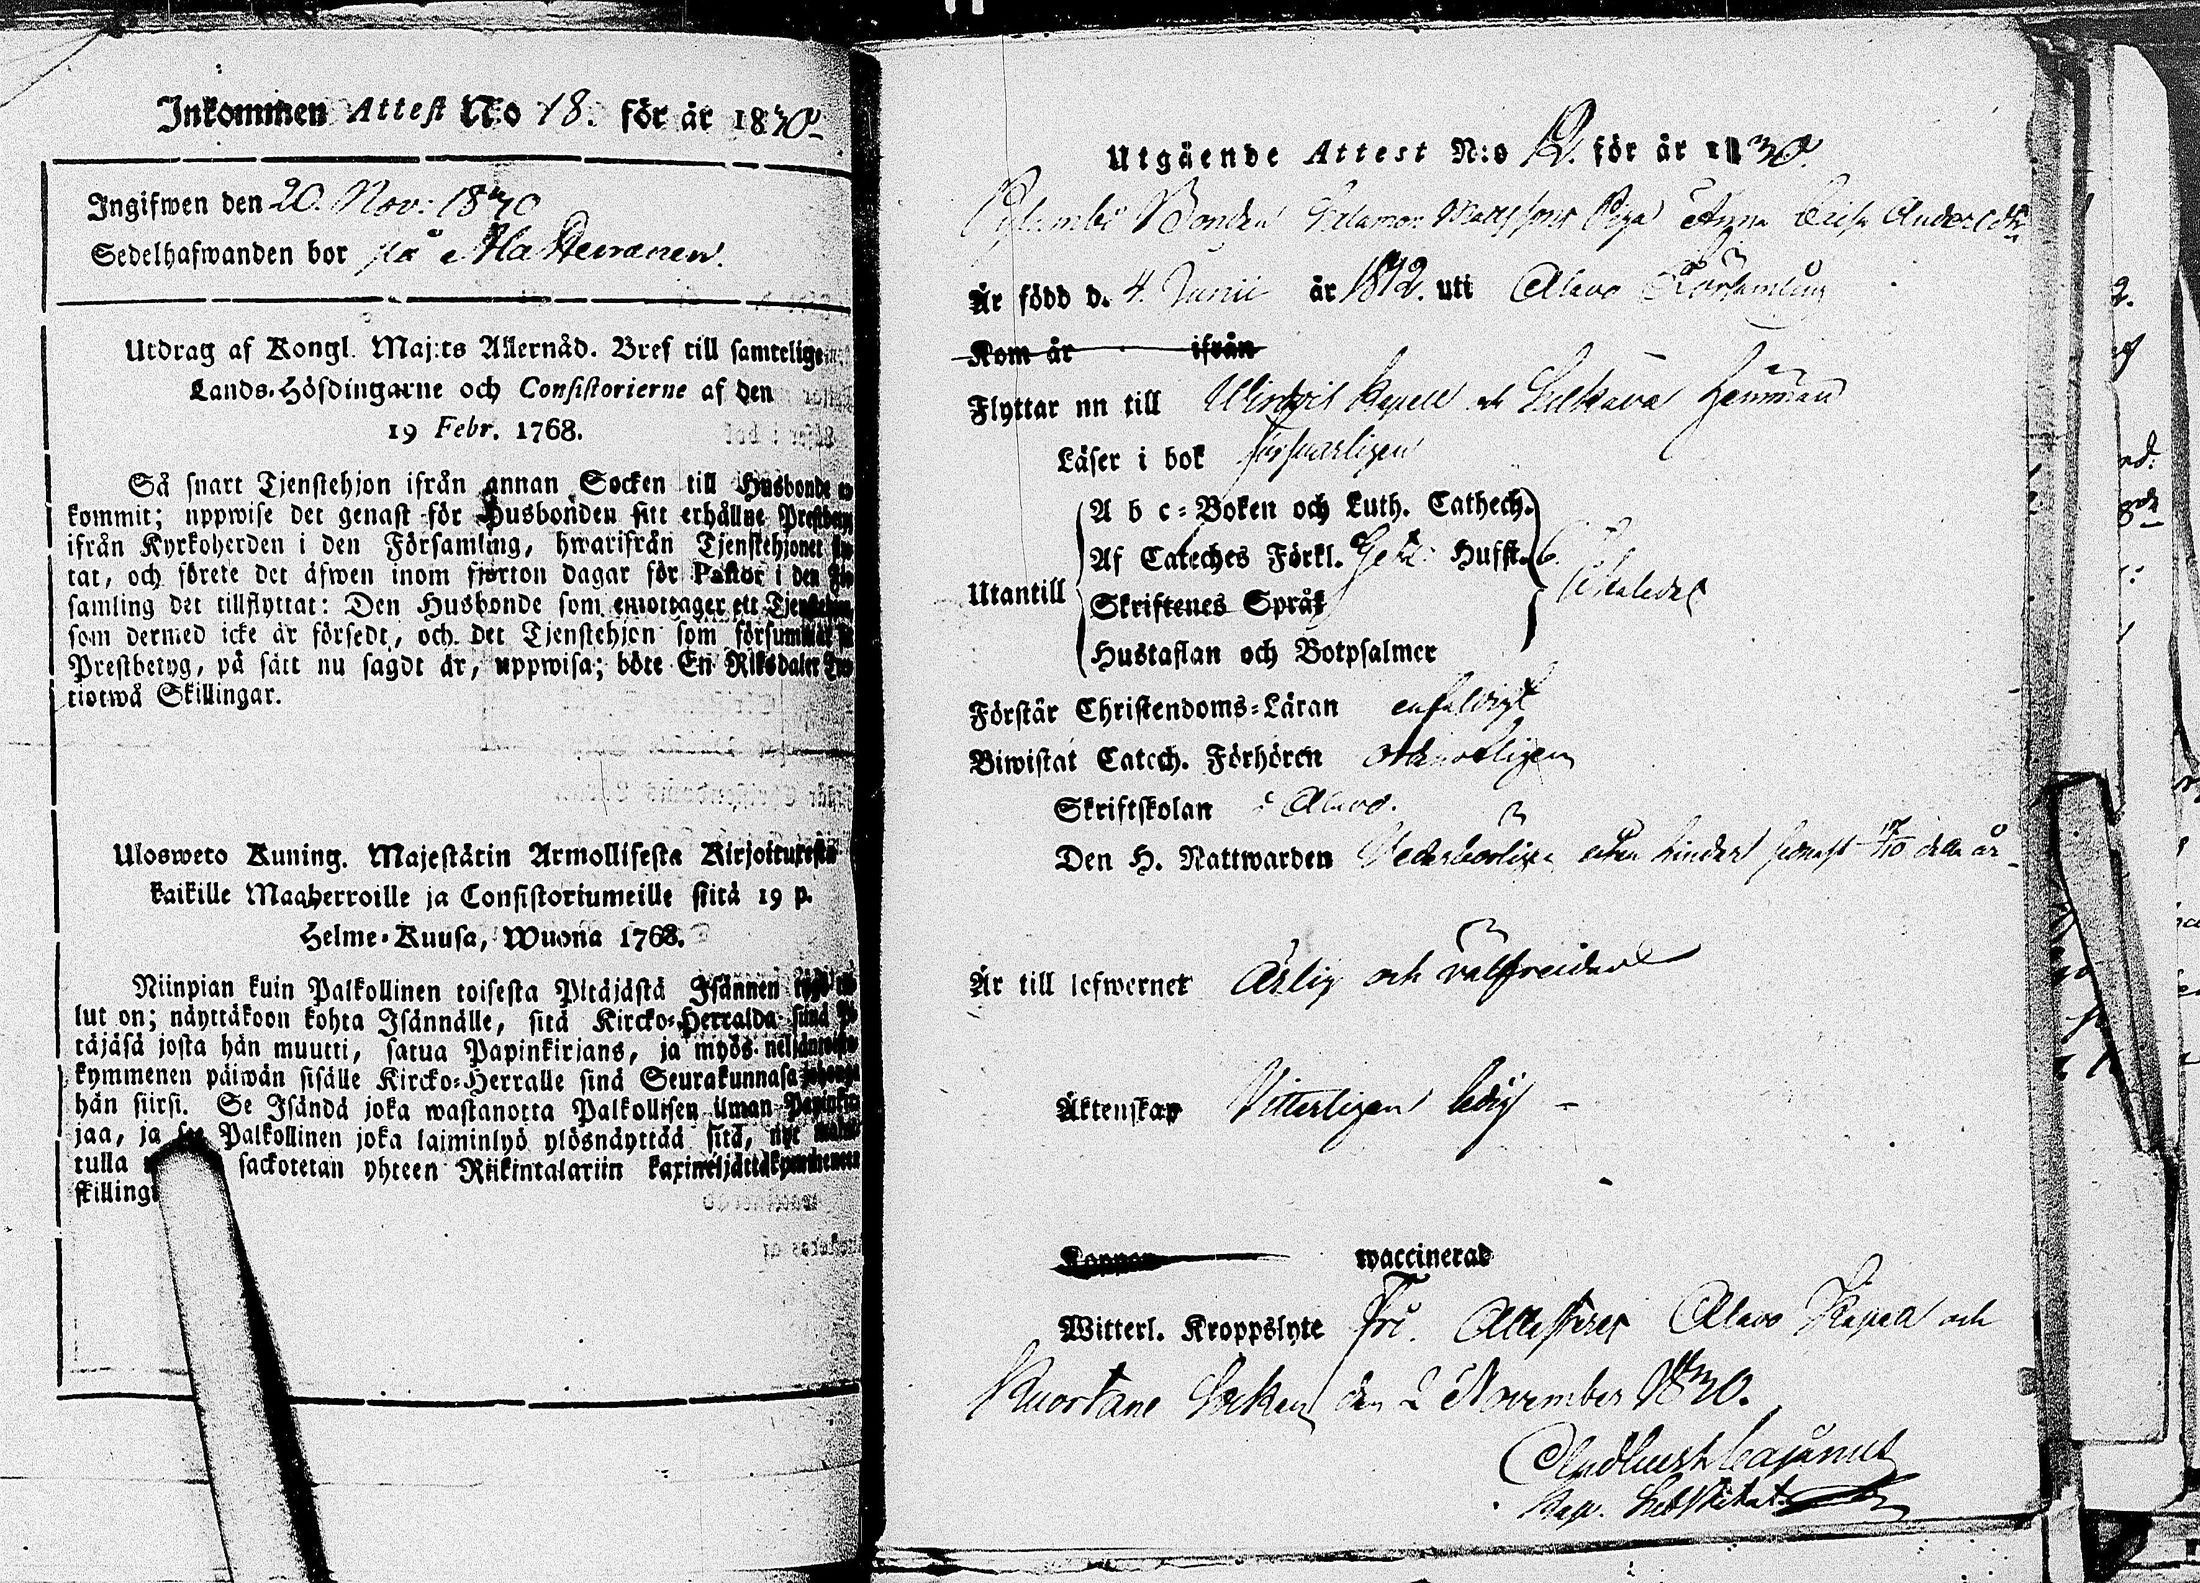 Inkommen Attest N:o 18. för år 1830
Ingifwen den 20. Nov: 1830
Sedelhafwanden bor på
Utdrag af Kongl. Maj:ts Allernåd. Bref till samtelige
Lands-Höfdingarne och Consistorierne af den
19 Febr. 1768.
Så snart Tjenstehjon ifrån annan Socken till Husbonde
kommit; uppwise det genast för Husbonden sitt erhållne
ifrån Kyrkoherden i den Församling, hwarifrån Tjenstehjonet
tat, och förete det äfwen inom fjorton dagar för Pastor i den
samling det tillflyttat: Den Husbonde som emottager ett
som dermed icke är försedt, och det Tjenstehjon som försummar
Prestbetyg, på sätt nu sagdt är, uppwisa; böte En Riksdaler
tiotwå Skillingar.
Uloswето Kuning. Majestätin Armollisesta Kirjoituxesta
kaikille Maaherroille ja Consistoriumeille siitä 19 p.
Helme-Kuusa, Wuonna 1768.
Niinpian kuin Palkollinen toisesta Pitäjästä Isännen
lut on; näyttäkoon kohta Isännälle, sitä Kircko-Herralda sinä
täjäsä josta hän muutti, saatua Papinkirjans, ja myös
kymmenen päiwän sisälle Kircko-Herralle sinä Seurakunnasa
hän siirsi. Se Isändä joka wastanotta Palkollisen ilman
jaa, ja Palkollinen joka laiminlyö ylösnäyttää sitä, nyt
tulla sackotetan yhteen Riikintalariin
skilling
Utgående Attest N:o 12. för år 1830.
Bonden Salomon Mattssons Piga Anna Caisa Andersdr
Är född d. 4. Junii år 1812. uti Alavo Församling
Kom år ifrån
Flyttar nu till Kapell och Hemman
Läser i bok försvarligen
Utantill
A b c-Boken och Luth. Cathech.
Af Cateches Förkl. Hufst. 6.
Skriftenes Språk
Hustaflan och Botpsalmer
Förstår Christendoms-Läran enfaldigt
Biwistat Catech. Förhören ordenteligen
Skriftskolan i Alavo.
Den H. Nattwarden Vederbörligen utan hinder senast 17/10 detta år
Är till lefwernet Ärlig och välfreidad
Äktenskap Vitterligen ledig
Koppor waccinerad
Witterl. Kroppslyte Fri. Attesterar Alavo Kapell och
Kuortane Socken den 2 November 1830.
Cajanus